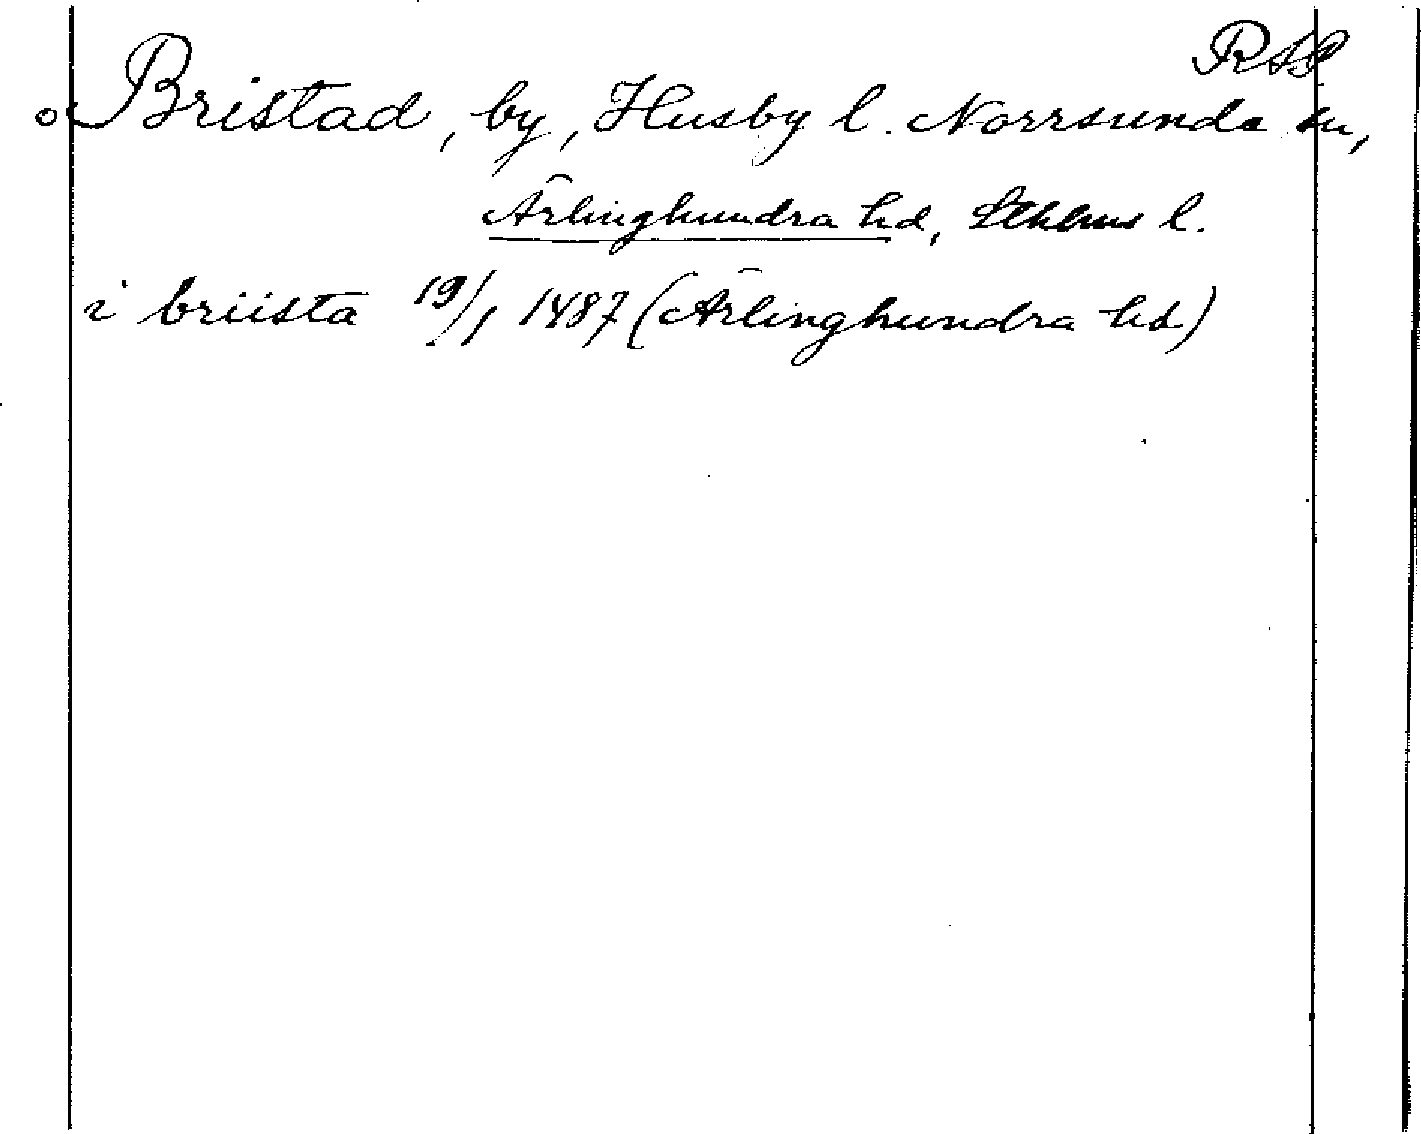 RAP
Bristad, by, Husby l. Norrsunda sn,
Ärlinghundra hd, Sthlms l.
i briista 19/1 1487 (Ärlinghundra hd)